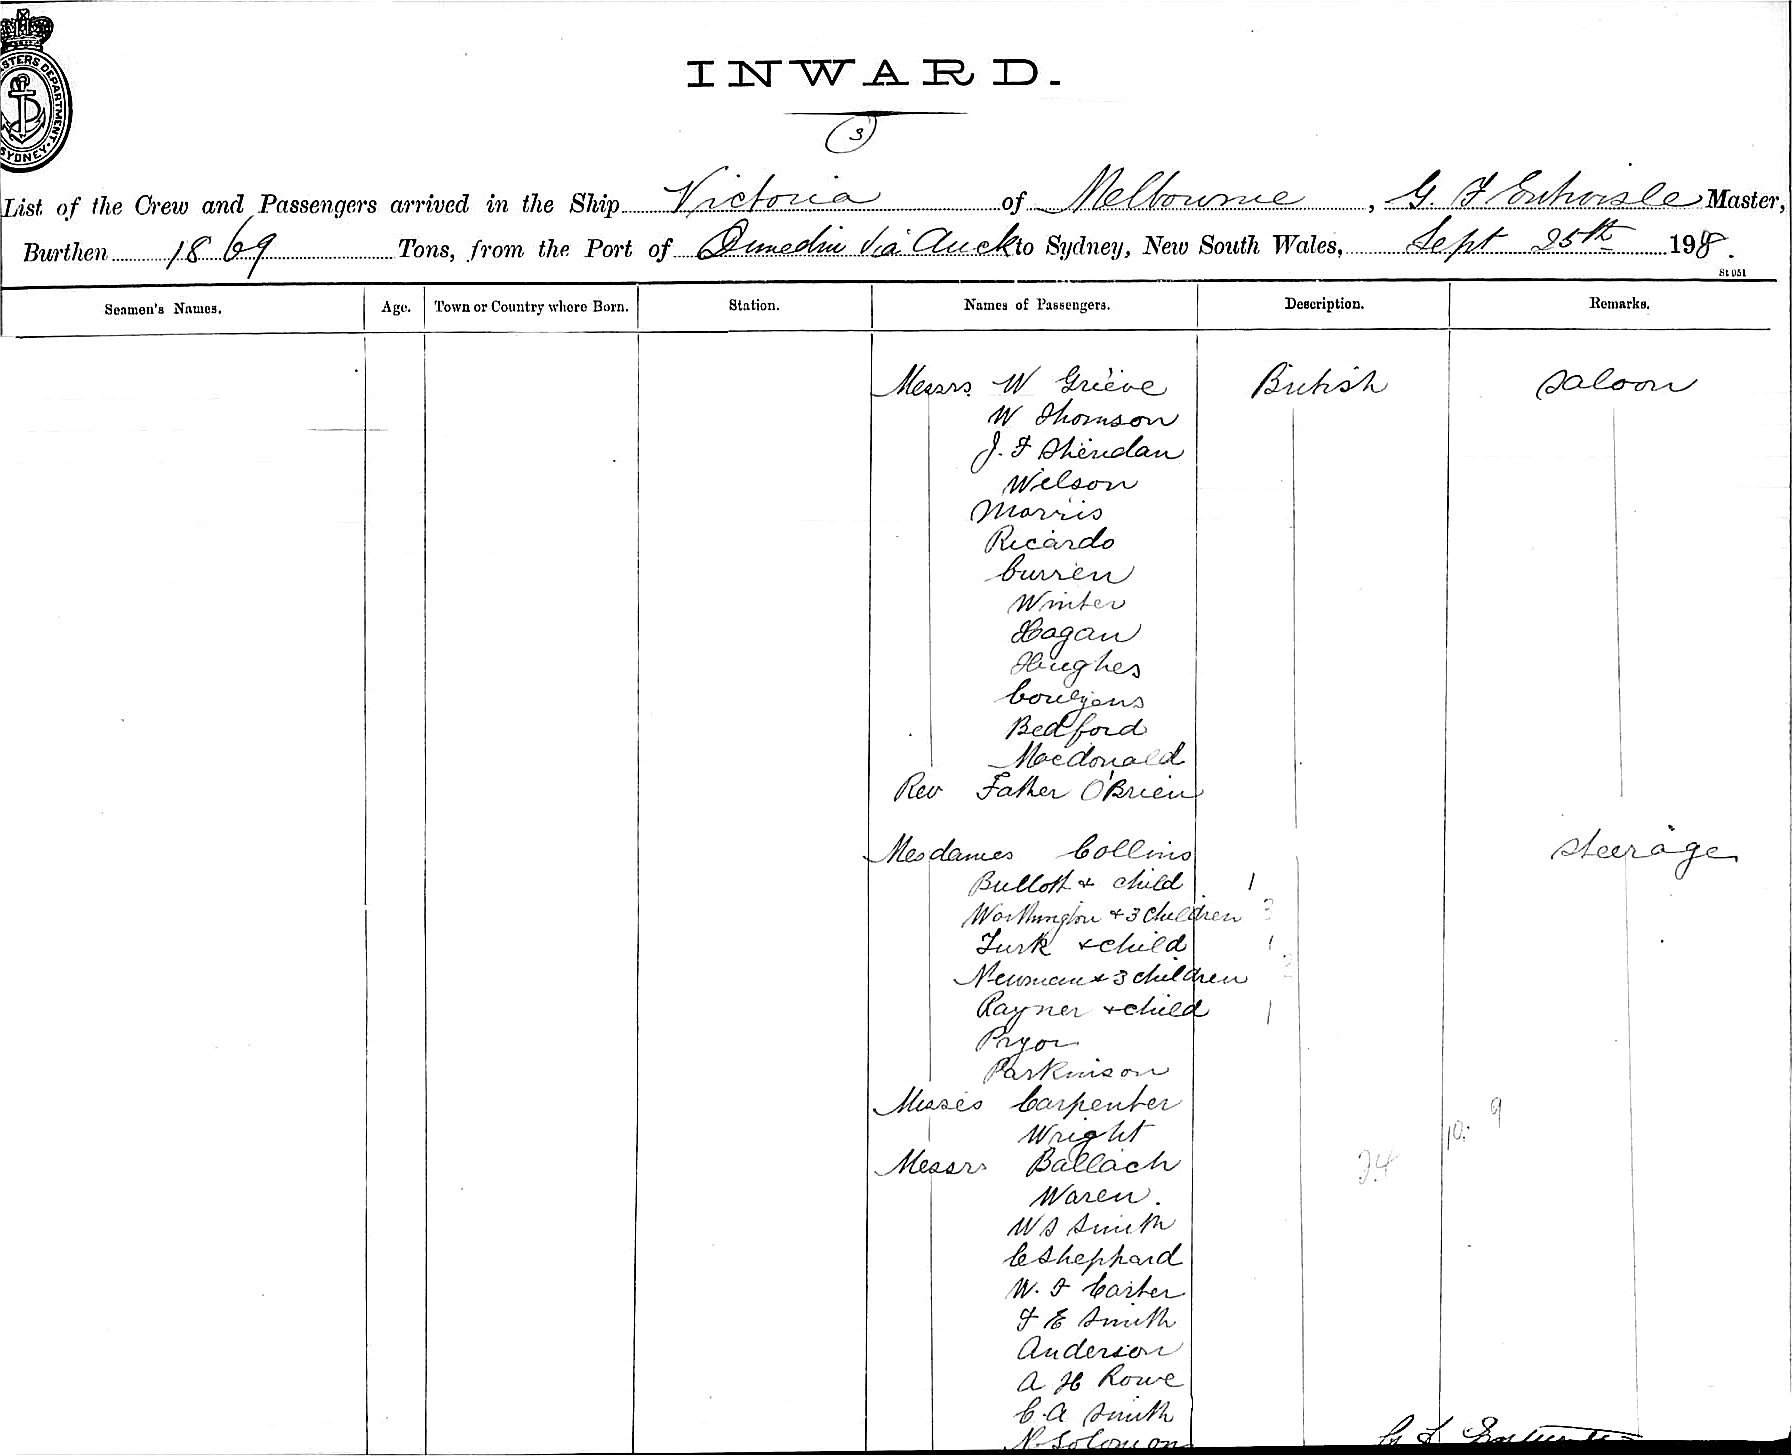 MASTERS DEPARTMENT. SYDNEY.
INWARD.
3
List of the Crew and Passengers arrived in the Ship Victoria of Melbourne, G. F Entwisle Master,
Burthen 1869 Tons, from the Port of Dunedin via Auck to Sydney, New South Wales, Sept 25th 198.
St 051
Seamen's Names. Age. Town or Country where Born. Station. Names of Passengers. Description. Remarks.
Messrs W Grieve British Saloon
W Thomson
J. F Sheridan
Wilson
Morris
Ricardo
Curren
Winter
Hagan
Hughes
Bedford
Macdonald
Rev Father O'Brien
Mesdames Collins Steerage
Bullott & child 1
Worthington & 3 children 3
Turk & child 1
Newman & 3 children 3
Rayner & child 1
Pryor
Parkinson
Misses Carpenter
9
Wright 10.
Messrs Ballach 24
Waren.
W S Smith
C Sheppard
W. F Carter
F E Smith
Anderson
A H Rowe
C. A Smith
N. Solomon